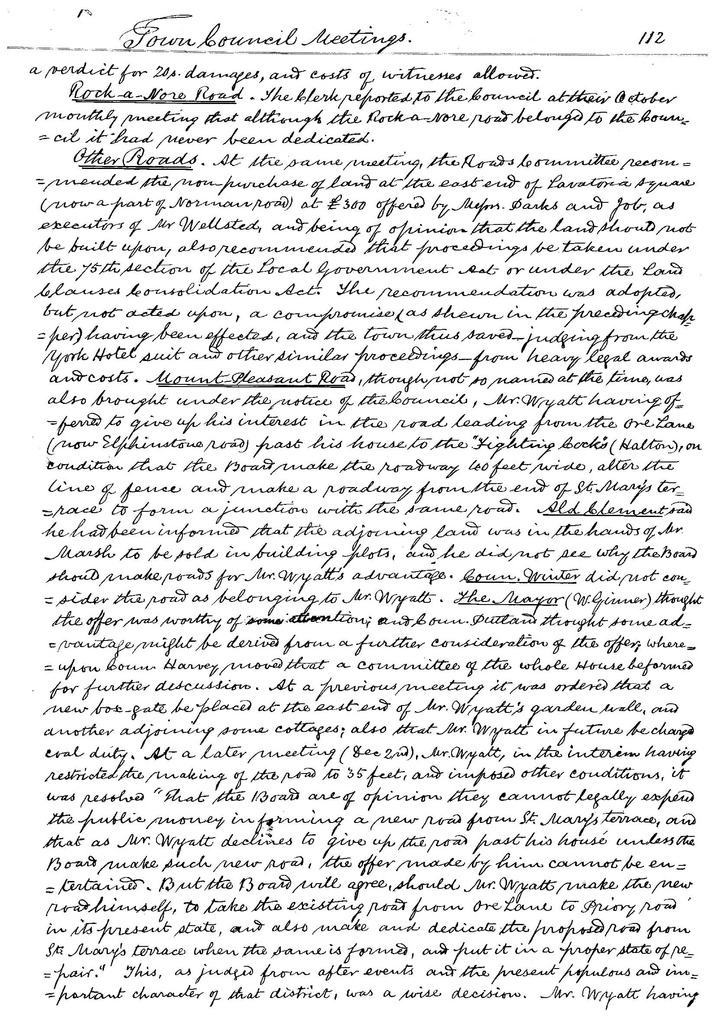 Town Council Meetings. 112
a verdict for 20s. damages, and costs of witnesses allowed.
Rock-a-Nore Road. The Clerk reported to the Council at their October
monthly meeting that although the Rock-a-Nore road belongd to the Coun=
=cil it had never been dedicated.
Other Roads. At the same meeting, the Roads Committee recom=
=mended the non-purchase of land at the east end of Lavatoria square
(now a part of Norman road) at £300 offered by Messrs. Darks and Job, as
executors of Mr Wellsted, and being of opinion that the land should not
be built upon, also recommended that proceedings be taken under
the 75th section of the Local Government Act or under the Land
Clauses Consolidation Act. The recommendation was adopted,
but not acted upon, a compromise (as shewn in the preceding chap=
=per) having been effected, and the town thus saved—judging from the
York Hotel suit and other similar proceedings—from heavy legal awards
and costs. Mount Pleasant Road, though not so named at the time, was
also brought under the notice of the Council, Mr. Wyatt having of=
=ferred to give up his interest in the road leading from the Ore Lane
(now Elphinstone road) past his house to the "Fighting Cocks" (Halton), on
condition that the Board make the roadway 60 feet wide, alter the
line of fence and make a roadway from the end of St. Mary's ter=
=race to form a junction with the same road. Ald Clement said
he had been informed that the adjoining land was in the hands of Mr.
Marsh to be sold in building plots, and he did not see why the Board
should make roads for Mr. Wyatt's advantage. Coun. Winter did not con=
=sider the road as belonging to Mr. Wyatt. The Mayor (W. Ginner) thought
the offer was worthy of some attention; and Coun. Putland thought some ad=
=vantage might be derived from a further consideration of the offer; where=
=upon Coun. Harvey moved that a committee of the whole House be formed
for further discussion. At a previous meeting it was ordered that a
new box-gate be placed at the east end of Mr. Wyatt's garden wall, and
another adjoining some cottages; also that Mr. Wyatt in future be charged
coal duty. At a later meeting (Dec 2nd), Mr. Wyatt, in the interim having
restricted the making of the road to 35 feet, and imposed other conditions, it
was resolved "That the Board are of opinion they cannot legally expend
the public money in forming a new road from St. Mary's terrace, and
that as Mr. Wyatt declines to give up the road past his house unless the
Board make such new road, the offer made by him cannot be en=
=tertained. But the Board will agree, should Mr. Wyatt make the new
road himself, to take the existing road from Ore Lane to Priory road
in its present state, and also make and dedicate the proposed road from
St. Mary's terrace when the same is formed, and put it in a proper state of re=
=pair." This, as judged from after events and the present populous and im=
=portant character of that district, was a wise decision. Mr. Wyatt having